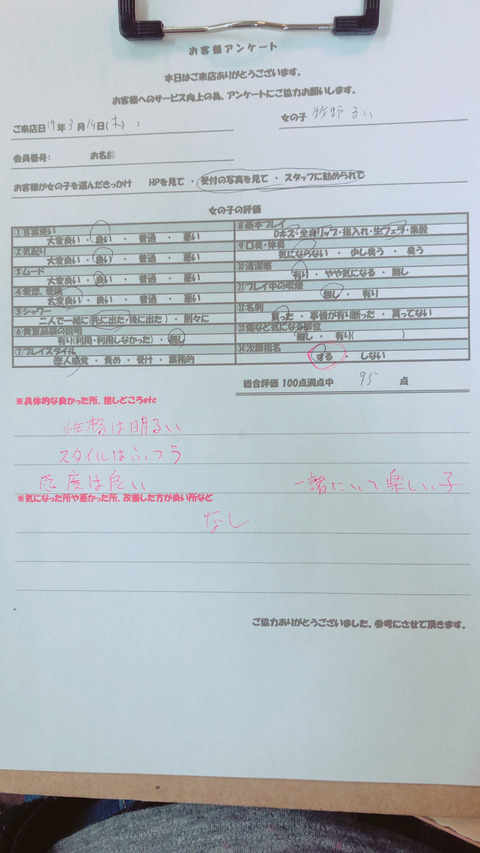 お客様アンケート
本日はご来店ありがとうございます。
お客様へのサービス向上の為、アンケートにご協力お願いします。
ご来店日 19年 3月 14日(木) :
女の子 牧野 るい
会員番号: お名前
お客様が女の子を選んだきっかけ HPを見て ・ 受付の写真を見て ・ スタッフに勧められて
女の子の評価
①言葉使い
大変良い ・ 良い ・ 普通 ・ 悪い
②気配り
大変良い ・ 良い ・ 普通 ・ 悪い
③ムード
大変良い ・ 良い ・ 普通 ・ 悪い
④愛想、笑顔
大変良い ・ 良い ・ 普通 ・ 悪い
⑤シャワー
二人で一緒に(先に出た・後に出た) ・ 別々に
⑥貴重品袋の説明
有り(利用・利用しなかった) ・ 無し
⑦プレイスタイル
恋人感覚 ・ 責め ・ 受け ・ 業務的
⑧基本プレイ
Dキス・全身リップ・指入れ・生フェラ・素股
⑨口臭・体臭
気にならない ・ 少し臭う ・ 臭う
⑩清潔感
有り ・ やや気になる ・ 無し
⑪プレイ中の喫煙
無し ・ 有り
⑫名刺
貰った ・ 事情が有り断った ・ 貰ってない
⑬傷など気になる部位
無し ・ 有り( )
⑭次回指名
する ・ しない
総合評価 100点満点中 95 点
※具体的な良かった所、推しどころetc
性格は明るい
スタイルはふつう
感度は良い 一緒にいて楽しい子
※気になった所や悪かった所、改善した方が良い所など
なし
ご協力ありがとうございました、参考にさせて頂きます。